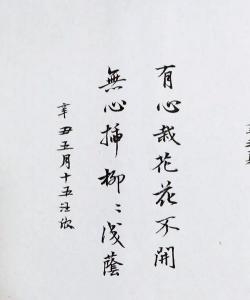 有心栽花花不開
無心插柳〻成蔭
辛丑五月十五汪欣